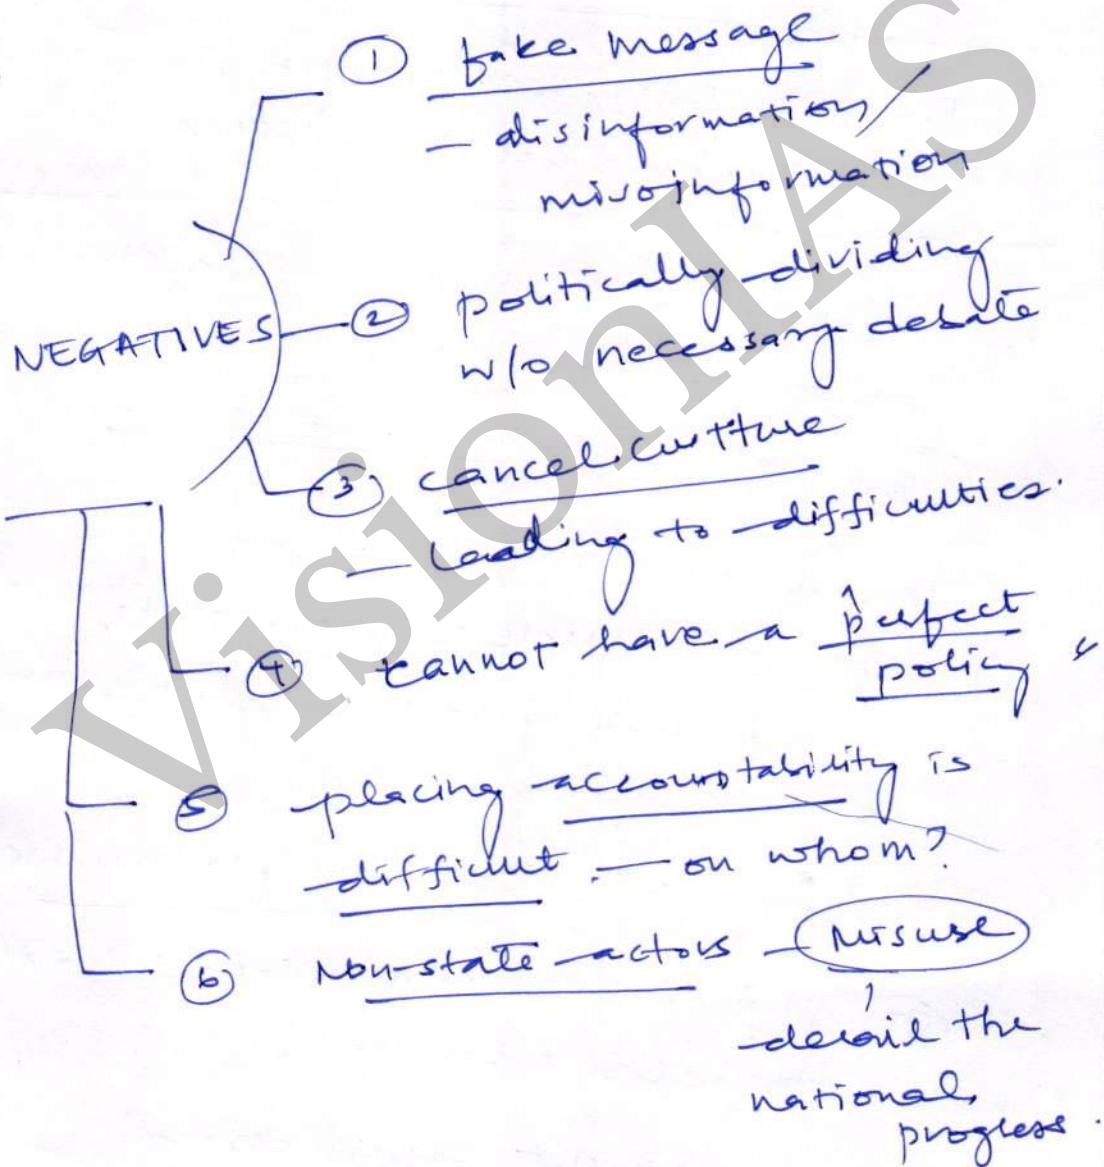 ① fake message
- disinformation/
misinformation
NEGATIVES
② politically dividing
w/o necessary debate
③ cancel culture
- leading to difficulties.
④ cannot have a perfect
policy
⑤ placing accountability is
difficult. - on whom?
⑥ Non-state actors - misuse
derail the
national
progress.
VisionIAS